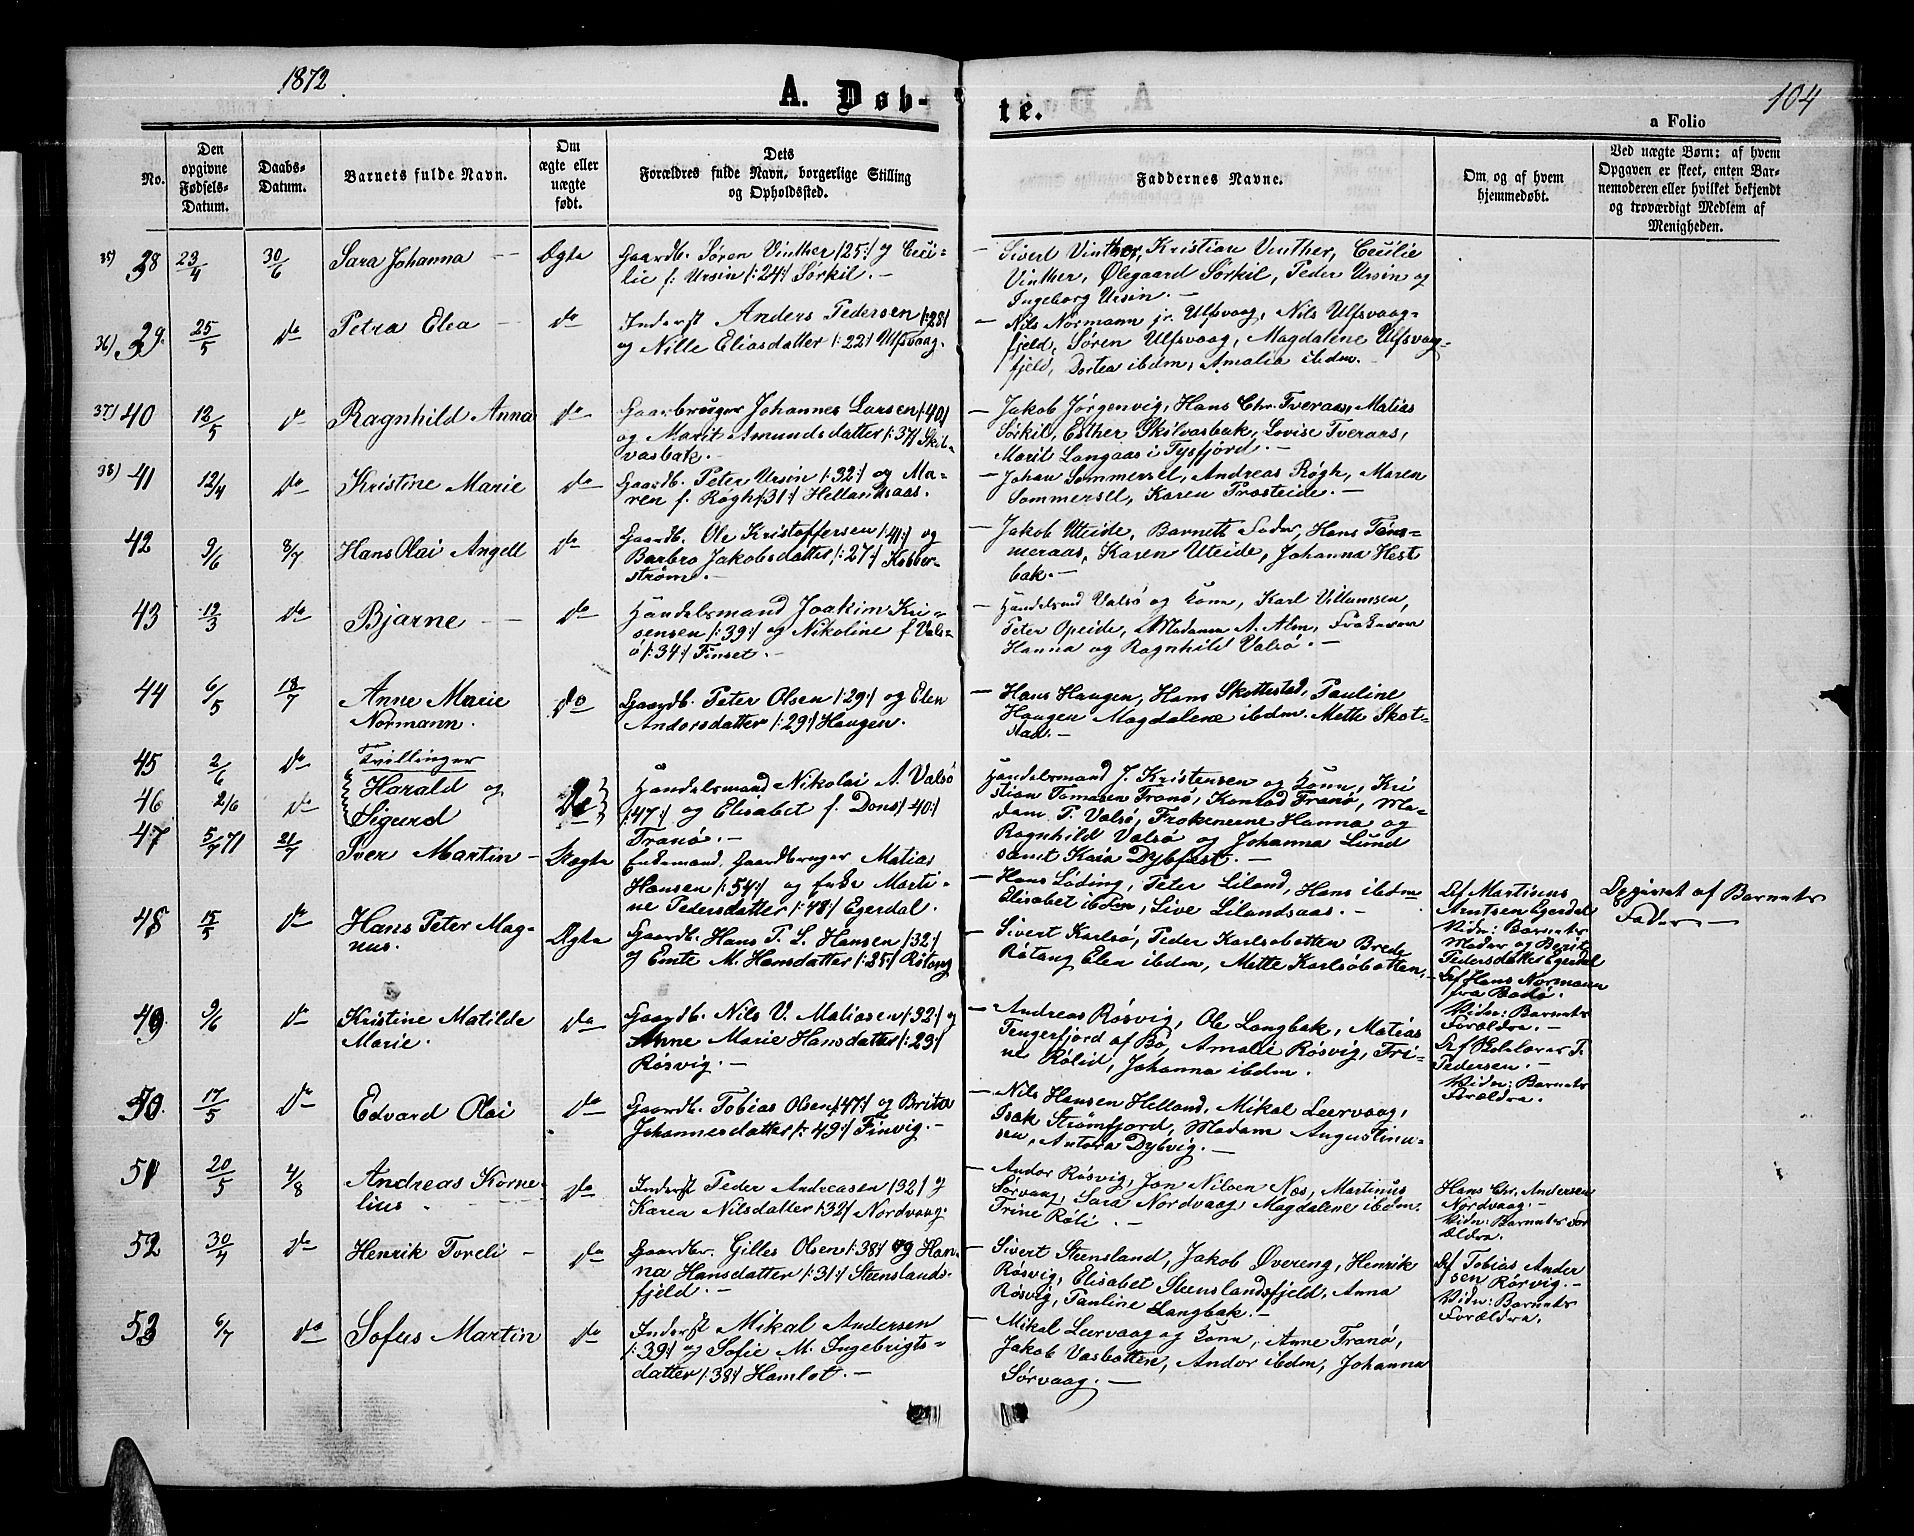 1872
A. Døb-
te.
104
a Folio
No.
Den
opgivne
Fødsels-
Datum.
Daabs-
Datum.
Barnets fulde Navn.
Om
ægte eller
uægte
født.
Dets
Forældres fulde Navn, borgerlige Stilling
og Opholdssted.
Faddernes Navne.
Om og af hvem
hjemmedøbt.
Ved uægte Børn: af hvem
Opgaven er skeet, enten Bar-
nemoderen eller hvilket bekjendt
og troværdigt Medlem af
Menigheden.
35) 38 23/4 30/6 Sara Johanna Ægte
Gaardb. Søren Vinther /:25:/ og Ceci-
lie f: Ursin /:24:/ Sørkil. —
— Sivert Vinther, Kristian Vinther, Cecilie
Vinther, Ølegaard Sørkil, Peder Ursin og
Ingeborg Ursin. —
36) 39. 25/5 do Petra Elea — do
Inderst Anders Pedersen /:28/
og Nille Eliasdatter /:22:/ Ulfsvaag.
— Nils Normann jr. Ulfsvaag, Nils Ulfsvaag-
fjeld, Søren Ulfsvaag, Magdalene Ulfsvaag-
fjeld, Dortea ibdm, Amalia ibdm.
37) 40 12/5 do Ragnhild Anna do
Gaarbruger Johannes Larsen /:40/
og Marit Amundsdatter /:37/ Skil-
vasbak. —
— Jakob Jørgenvig, Hans Chr. Tveraas, Matias
Sørkil, Esther Skilvasbak, Lovise Tveraas,
Marit Langaas i Tysfjord. —
38) 41 12/4 do Kristine Marie do
Gaardb. Peter Ursin /:32:/ og Ma-
ren f. Røgh /:31:/ Hellandsaas.
— Johan Sommersel, Andreas Røgh, Maren
Sommersel, Karen Trosteide. —
42 9/6 8/7 Hans Olai Angell do
Gaardb. Ole Kristoffersen /:41:/ og
Barbro Jakobsdatter /:27:/ Kobber-
strøm. —
— Jakob Uteide, Barnets Fader, Hans Tøms-
meraas, Karen Uteide, Johanna Hest
bak. —
43 19/3 do Bjarne — do
Handelsmand Joakim Kri-
sensen /:39:/ og Nikoline f Vals-
ø /:34:/ Finset. —
— Handelsmd Valsø og Kone, Karl Villumsen,
Peter Opeide, Madame A. Alm, Frøkenerne
Hanna og Ragnhild Valsø. —
44 6/5 18/7 Anne Marie
Normann. do
Gaardb. Peter Olsen /:29:/ og Elen
Andorsdatter /:29:/ Haugen.
— Hans Haugen, Hans Skottestad, Pauline
Haugen Magdalene ibdm. Mette Skot-
stad. —
45 2/6 do Tvillinger
46 2/6 do Harald og
Sigurd do
Handelsmand Nikolai A. Valsø
/:47:/ og Elisabet f. Dons /:40:/
Tranø. —
Handelsmand J. Kristensen og Kone, Kri
stian Tomasen Tranø, Konrad Tranø, Ma-
dam P. Valsø, Frøkenerne Hanna og
Ragnhild Valsø og Johanna Lund
samt Kaia Dybfest. —
47 5/7 71 21/7 Iver Martin — Uægte
Enkemand, Gaardbruger Matias
Hansen /:54:/ og Enke Marti-
ne Pedersdatter /:48:/ Egerdal.
— Hans Løding, Peter Liland, Hans ibdm
Elisabet ibdm, Live Lilandsaas. —
Af Martinus
Arntsen Egerdal
Vidn: Barnets
Moder og Berit
Pedersdatter Egerdal
Opgivet af Barnets
Fader —
48 15/5 do Hans Peter Mag-
nus. Ægte
Gaardb. Hans P. L. Hansen /:32/
og Emte M. Hansdatter /:25:/ Røtang
— Sivert Karlsø, Peder Karlsøbotten Brede
Røtang Elen ibdm, Mette Karlsøbotten. —
Af Hans Normann
fra Bodø.
Vidn: Barnets
Forældre. —
49. 9/6 do Kristine Matilde
Marie. do
Gaardb. Nils V. Matiasen /:32:/ og
Anne Marie Hansdatter /:29/
Røsvig. —
— Andreas Røsvig, Ole Langbak, Matias
Tengerfjord af Bø, Amalie Røsvig, Tri-
ne Rølid, Johanna ibdm.
Af Skolelærer P.
Pedersen. —
Vidn: Barnets
Forældre.
50. 17/5 do Edvard Olai do
Gaardb. Tobias Olsen /:47:/ og Brita
Johannesdatter /:49:/ Finvig. —
— Nils Hansen Helland, Mikal Leervaag,
Isak Strømfjord, Madam Augustinu-
sen, Antora Dybvig. —
51 20/5 4/8 Andreas Korne-
lius. do
Inderst Peder Andreasen /:32/ og
Karen Nilsdatter /:32/ Nordvaag.
— Andor Røsvig, Jon Nilsen Nes, Martinus
Sørvaag, Sara Nordvaag, Magdalene ibdm.
Trine Røli. —
Hans Chr. Andersen
Nordvaag. —
Vidn: Barnets For
ældre.
52 30/4 do Henrik Toreli — do
Gaardbr. Gilles Olsen /:38/ og Han-
na Hansdatter /:31:/ Steenslands-
fjeld. —
— Sivert Steensland, Jakob Øvereng, Henrik
Røsvig, Elisabet Steenslandsfjeld, Anna
Røsvig, Pauline Langbak. —
Af Tobias Ander
sen Rørvig. —
Vidn: Barnets
Forældre.
53 6/7 do Sofus Martin do
Inderst Mikal Andersen
/:39:/ og Sofie M. Ingebrigts-
datter /:38/ Hamlot. —
— Mikal Leervaag og Kone, Anne Tranø,
Jakob Vasbotten, Andor ibdm, Johanna
Sørvaag. —